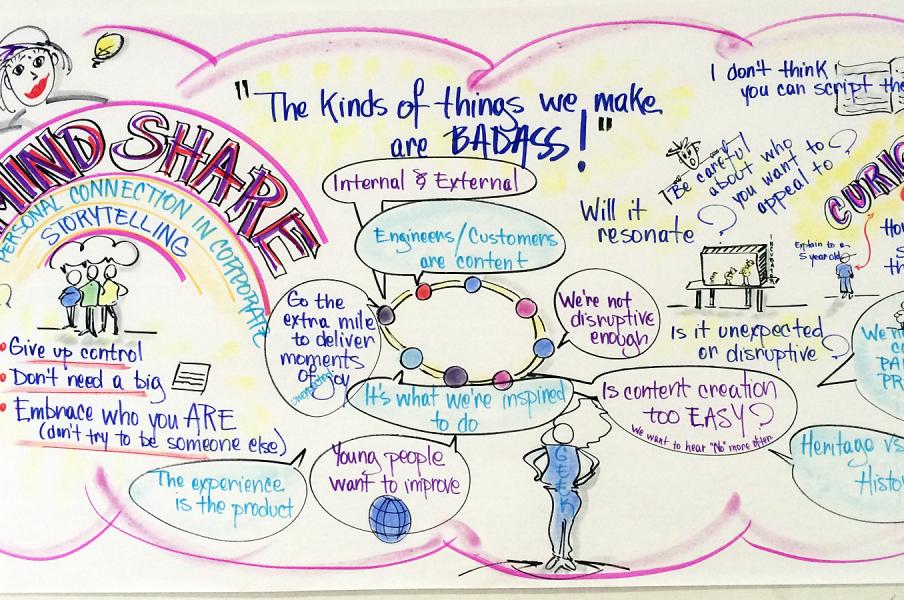 MIND SHARE
PERSONAL CONNECTION IN CORPORATE
STORYTELLING
• Give up control
• Don't need a big
• Embrace who you ARE
(don't try to be someone else)
"The kinds of things we make
are BADASS!"
Internal & External
Engineers/Customers
are content
Go the
extra mile
to deliver
moments
of joy
We're not
disruptive
enough
It's what we're inspired
to do
The experience
is the product
Young people
want to improve
GEEK
Is content creation
too EASY?
We want to hear "No" more often
I don't think
you can script the
Be careful
about who
you want to
appeal to
?
Will it
resonate ?
INCUBATOR
Is it unexpected
or disruptive ?
Explain to a
5 year old
CURIO
How
s
th
We
CO
PA
PR
Heritage vs
Histo